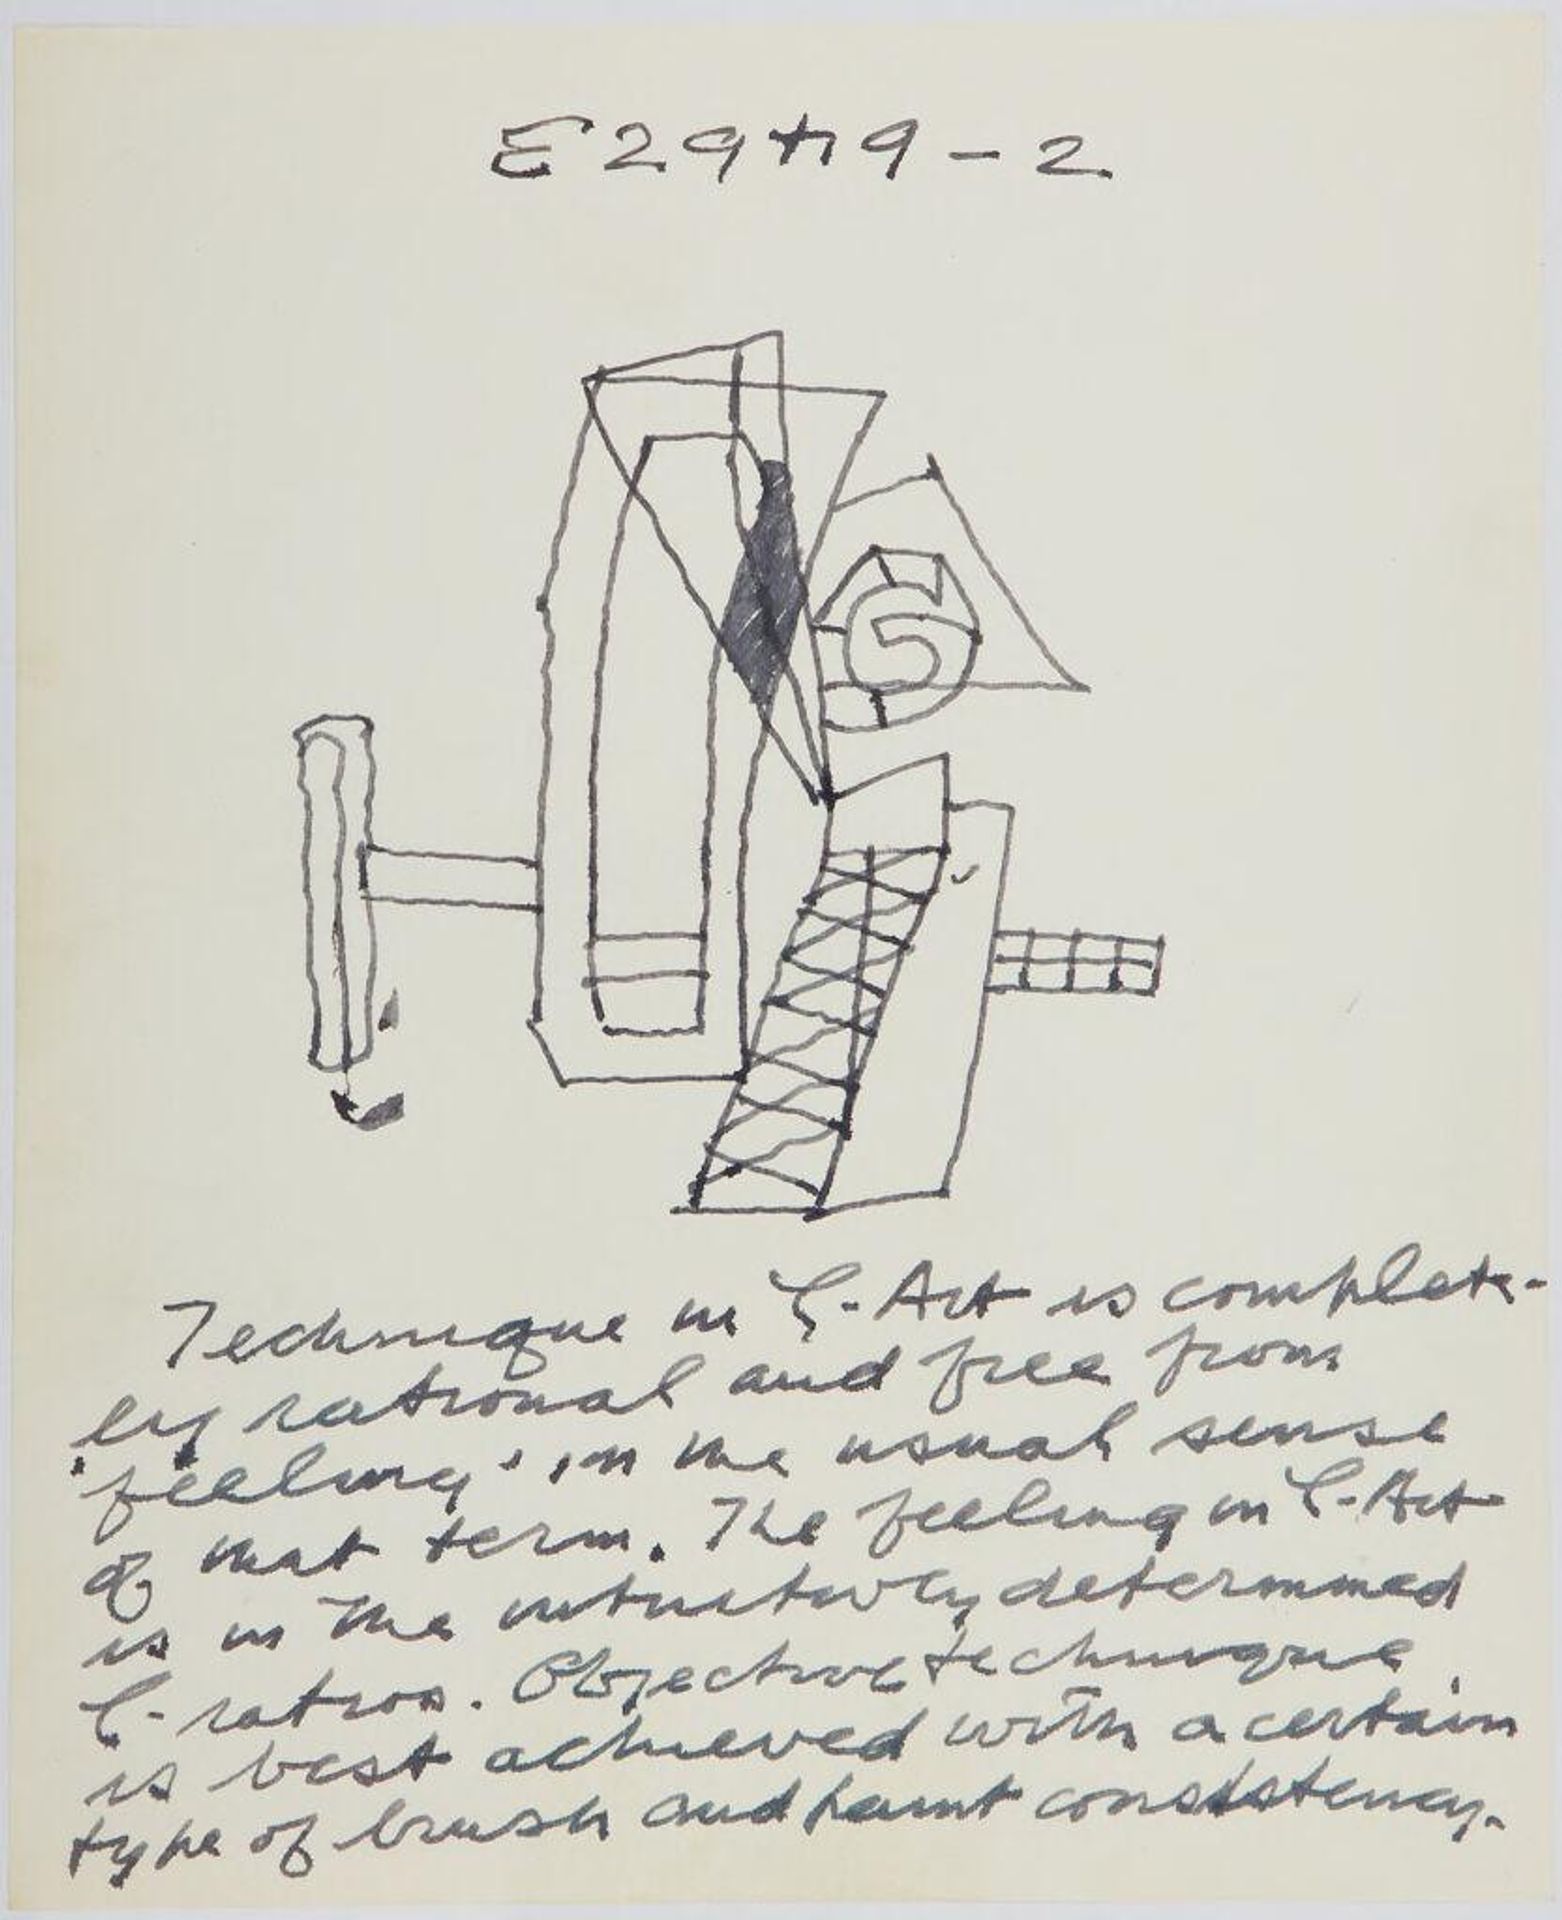 E29th9-2
Technique in ζ-Art is complete-
ly rational and free from
'feeling' in the usual sense
of that term. The feeling in ζ-Art
is in the intuitively determined
ζ-ratios. Objective technique
is best achieved with a certain
type of brush and paint consistency.